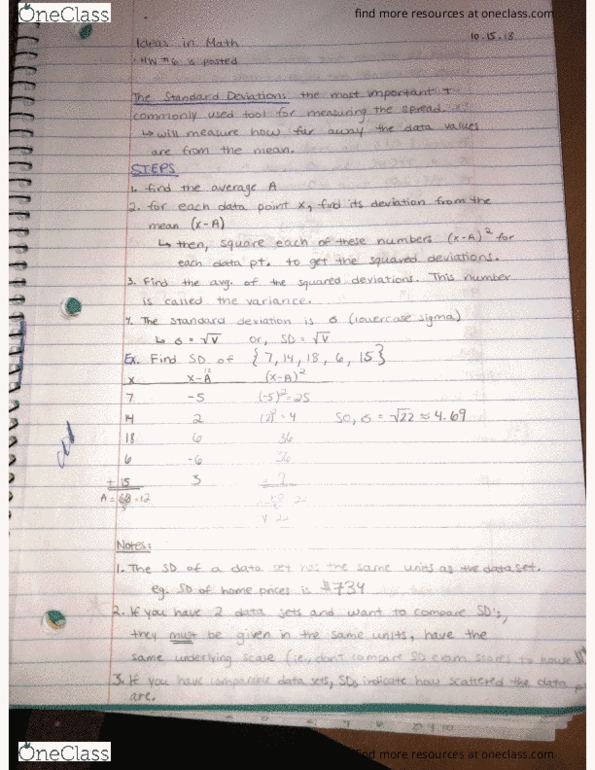 OneClass
find more resources at oneclass.com
10.15.18
Ideas in Math
· HW #6 is posted
The Standard Deviations: the most important +
commonly used tool for measuring the spread.
↳ will measure how far away the data values
are from the mean.
STEPS
1. find the average A
2. for each data point x, find its deviation from the
mean (x-A)
↳ then, square each of these numbers (x-A)² for
each data pt. to get the squared deviations.
3. Find the avg. of the squared deviations. This number
is called the variance.
4. The standard deviation is σ (lowercase sigma)
↳ σ = √V or, SD = √V
Ex. Find SD of {7, 14, 18, 6, 15}
x x-A (x-A)²
7 -5 (-5)² = 25
14 2 (2)² = 4 so, σ = √22 ≈ 4.69
18 6 36
6 -6 36
+ 15 3
A = 60 = 12
5
Notes:
1. The SD of a data set has the same units as the data set.
eg. SD of home prices is $734
2. If you have 2 data sets and want to compare SD's,
they must be given in the same units, have the
same underlying scale (i.e., don't compare SD exam scores to house
3. If you have comparable data sets, SDs indicate how scattered the data
are.
OneClass
find more resources at oneclass.com